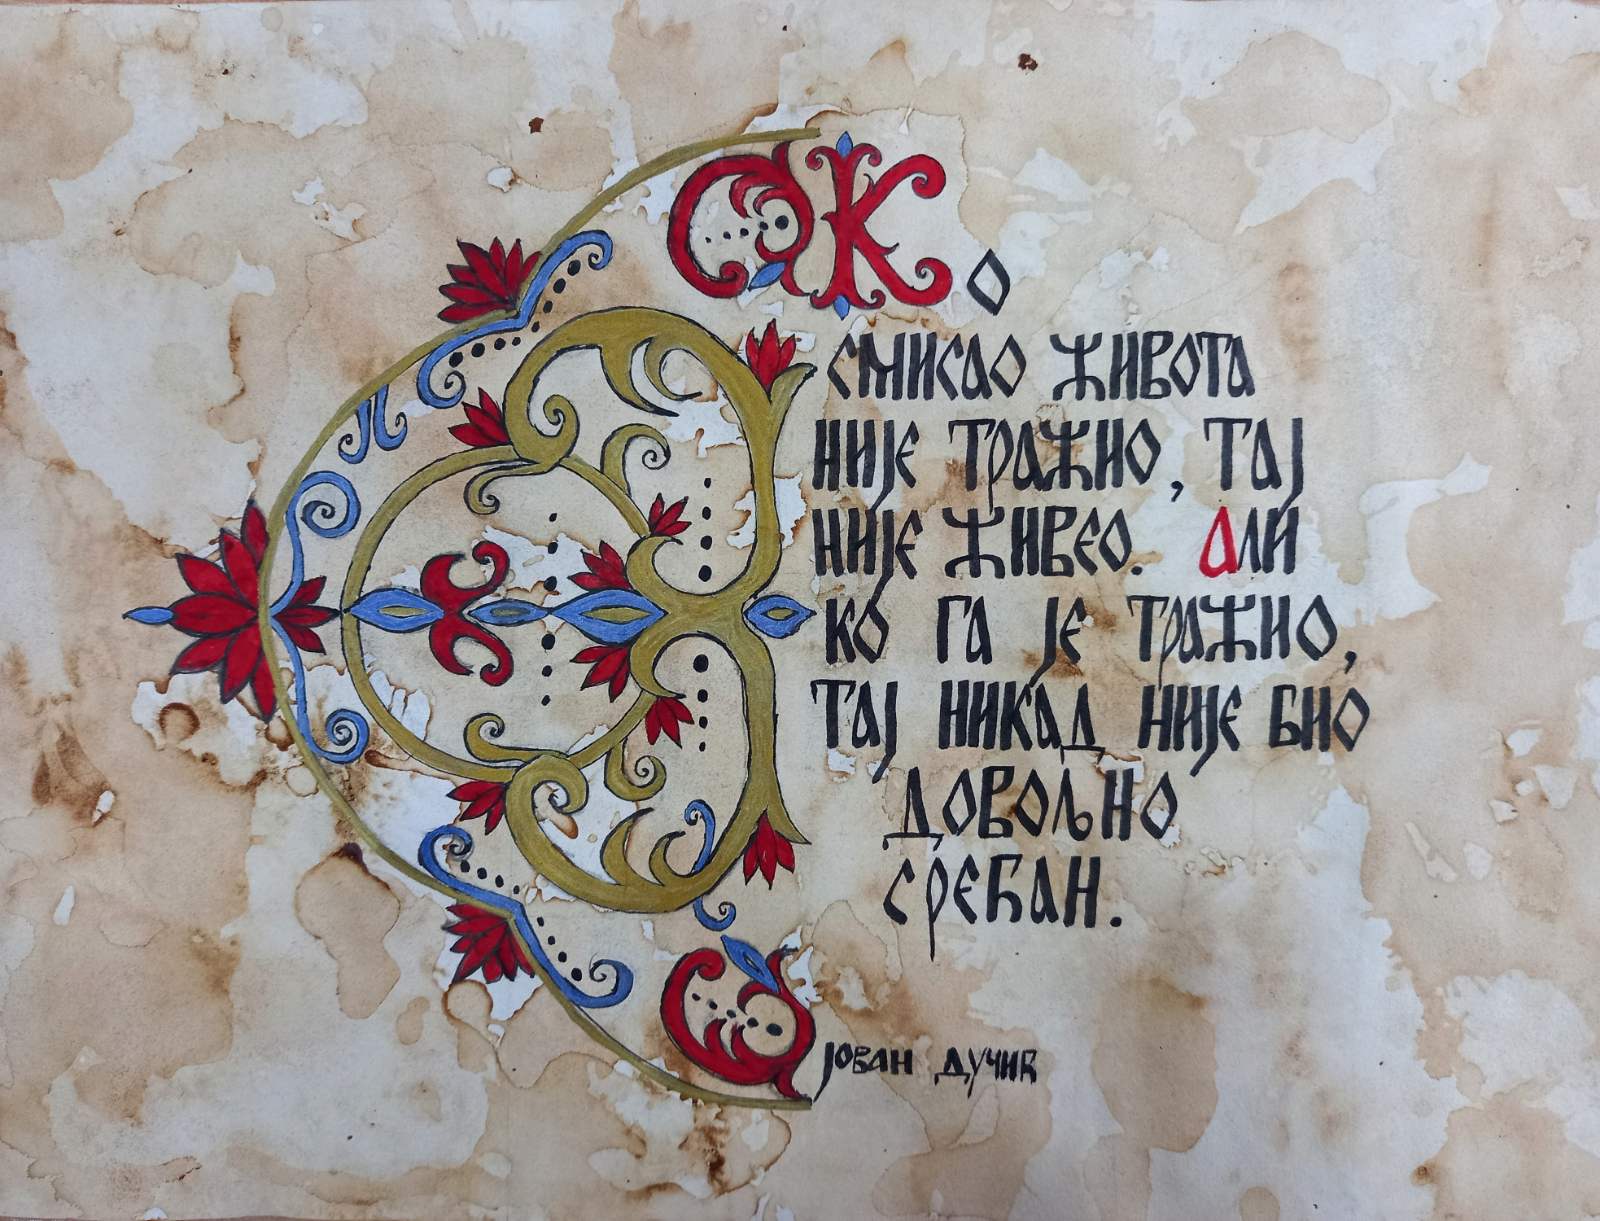 Ко
смисао живота
није тражио, тај
није живео. Али
ко га је тражио,
тај никад није био
довољно
срећан.
Јован Дучић